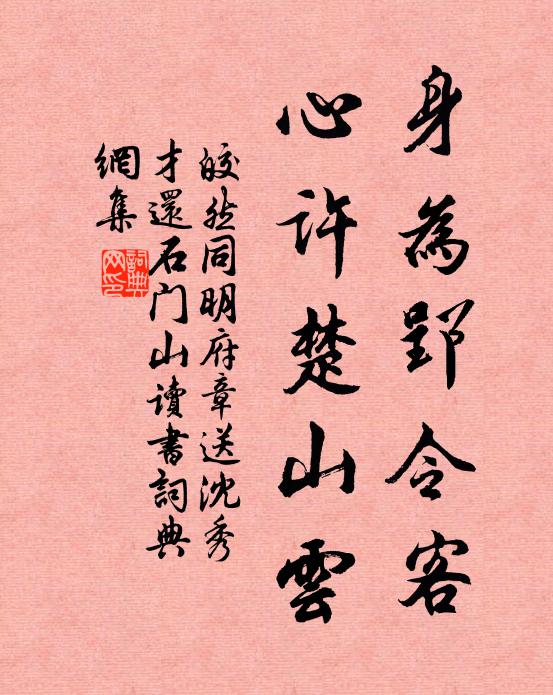 身為郢令客
心許楚山雲
皎然同明府章送沈秀
才還石门山讀書詞典
網集
詞典
网印